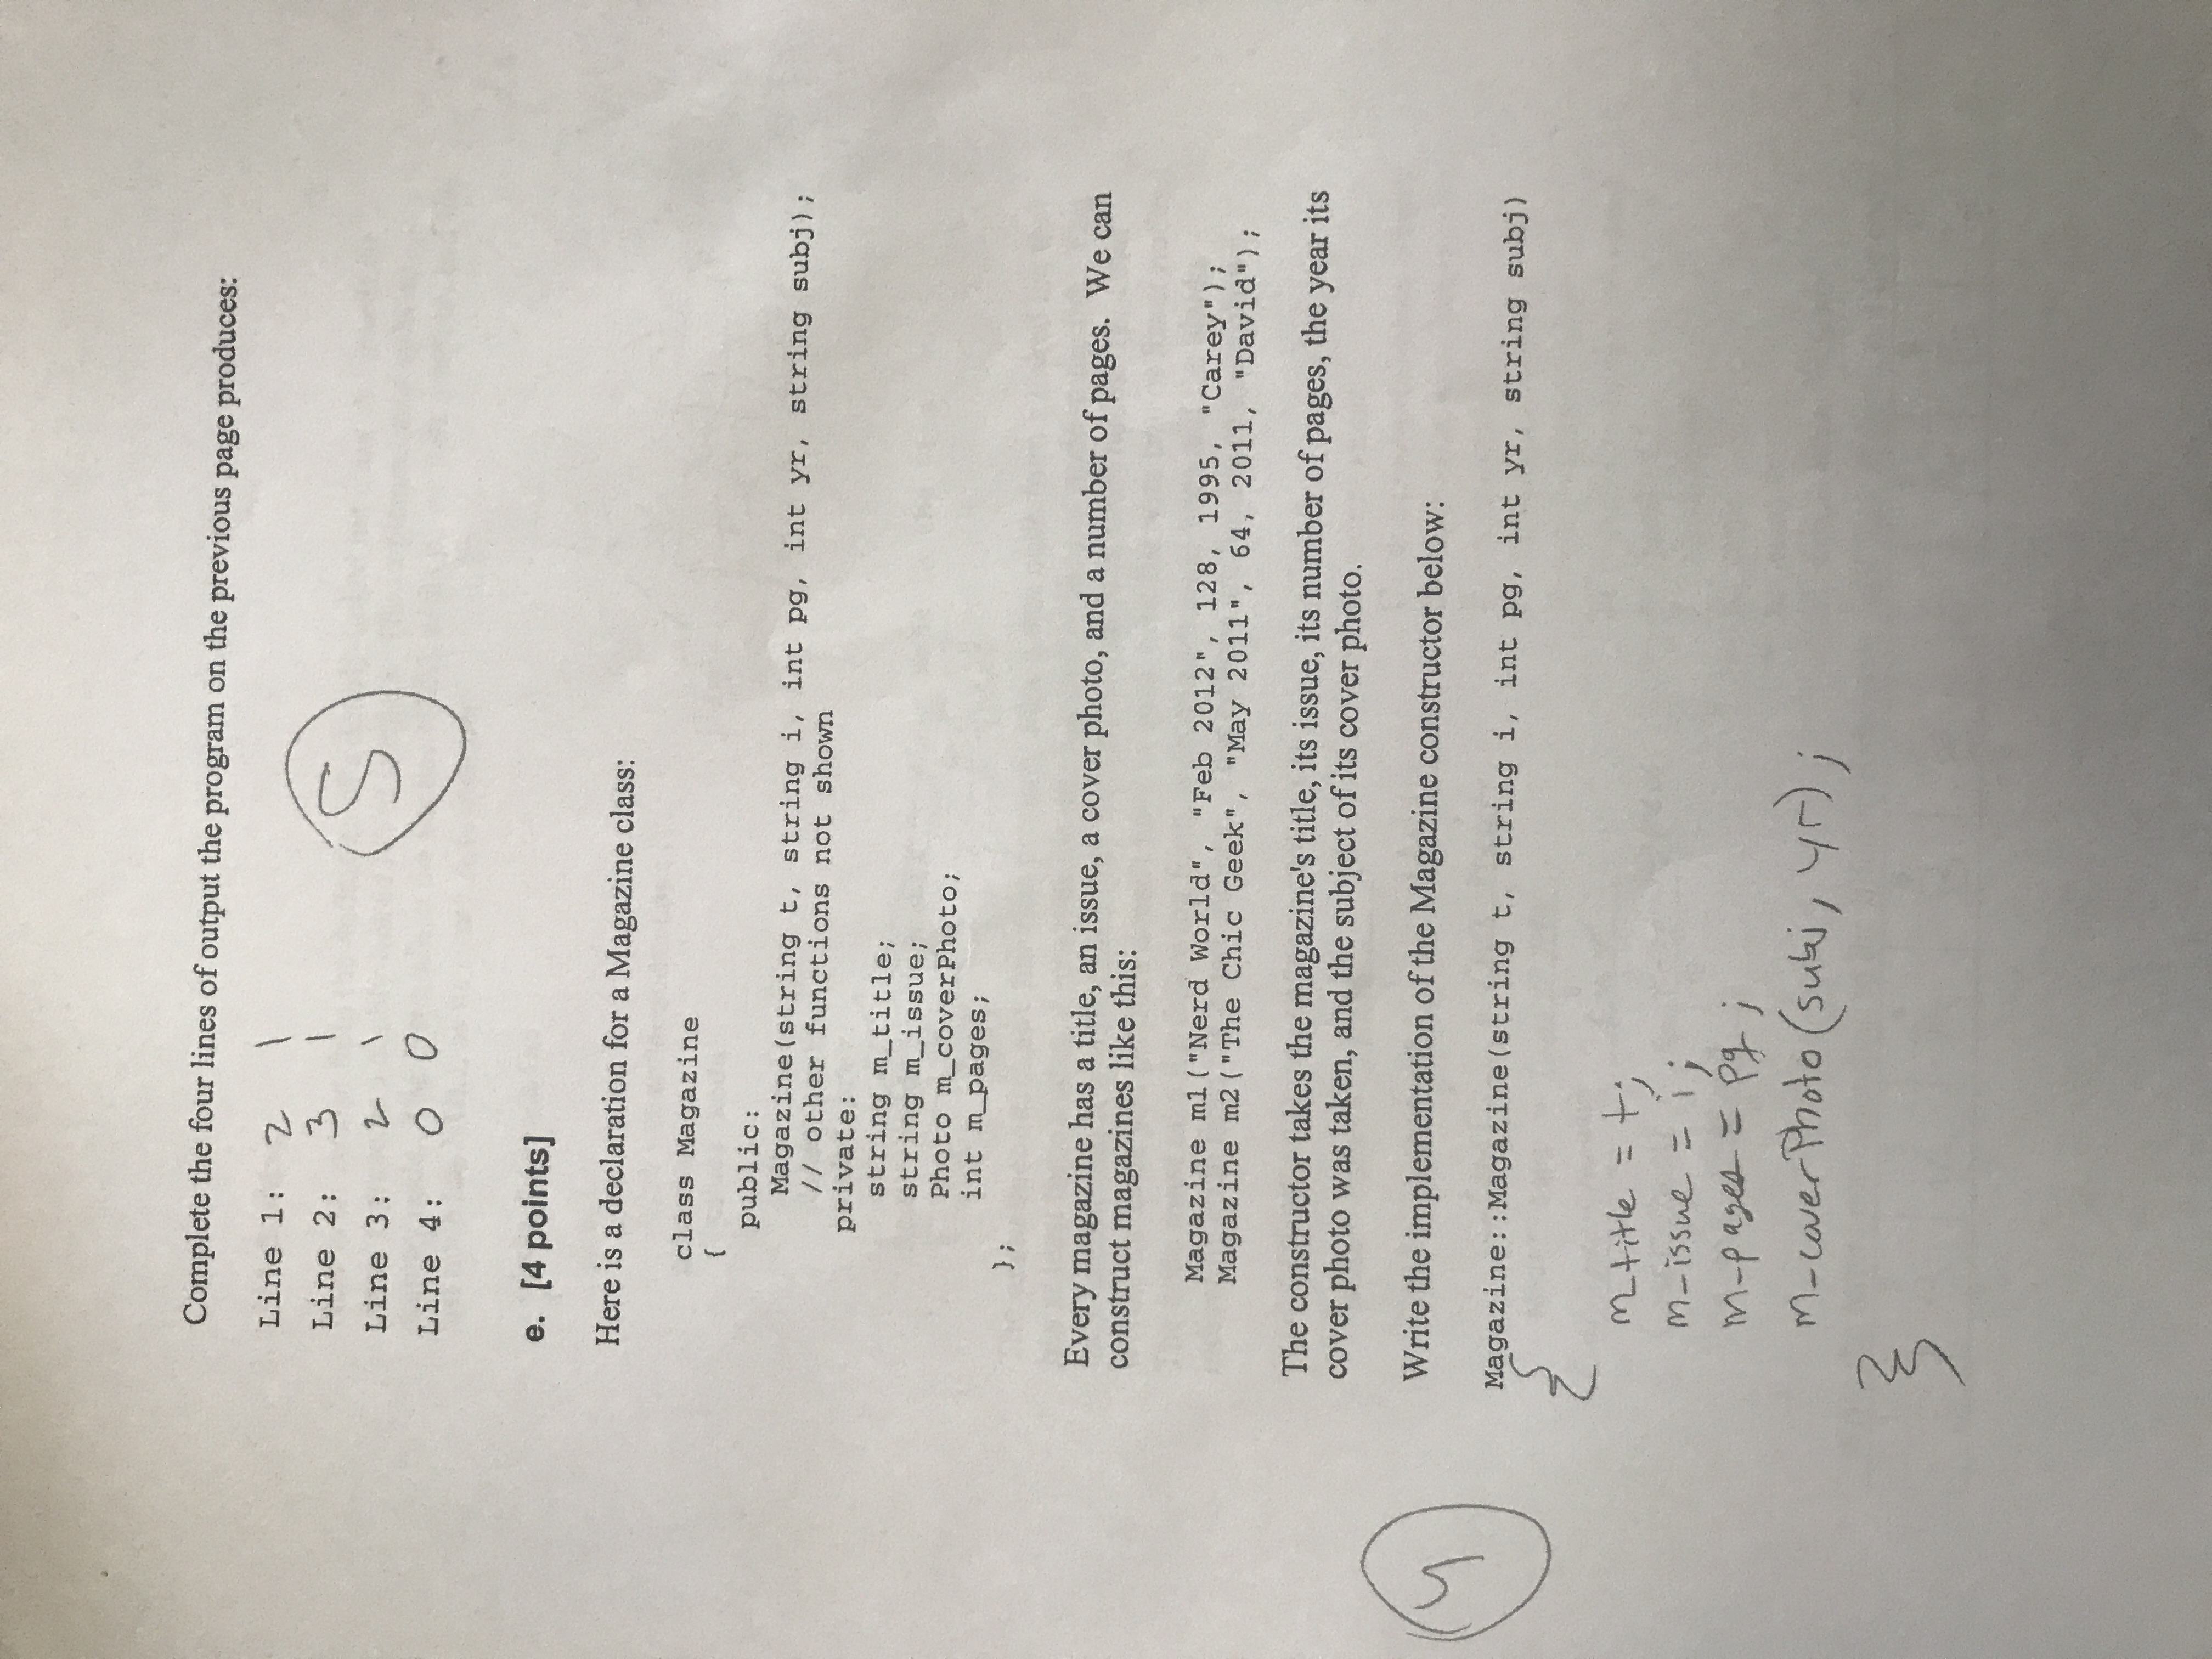 Complete the four lines of output the program on the previous page produces:
Line 1: 2 1
Line 2: 3 1
Line 3: 2 1
Line 4: 0 0
5
e. [4 points]
Here is a declaration for a Magazine class:
class Magazine
{
public:
Magazine(string t, string i, int pg, int yr, string subj);
// other functions not shown
private:
string m_title;
string m_issue;
Photo m_coverPhoto;
int m_pages;
};
Every magazine has a title, an issue, a cover photo, and a number of pages. We can
construct magazines like this:
Magazine m1("Nerd World", "Feb 2012", 128, 1995, "Carey");
Magazine m2("The Chic Geek", "May 2011", 64, 2011, "David");
The constructor takes the magazine's title, its issue, its number of pages, the year its
cover photo was taken, and the subject of its cover photo.
4
Write the implementation of the Magazine constructor below:
Magazine::Magazine(string t, string i, int pg, int yr, string subj)
{
m_title = t;
m_issue = i;
m_pages = pg;
m_coverPhoto(subj, yr);
}